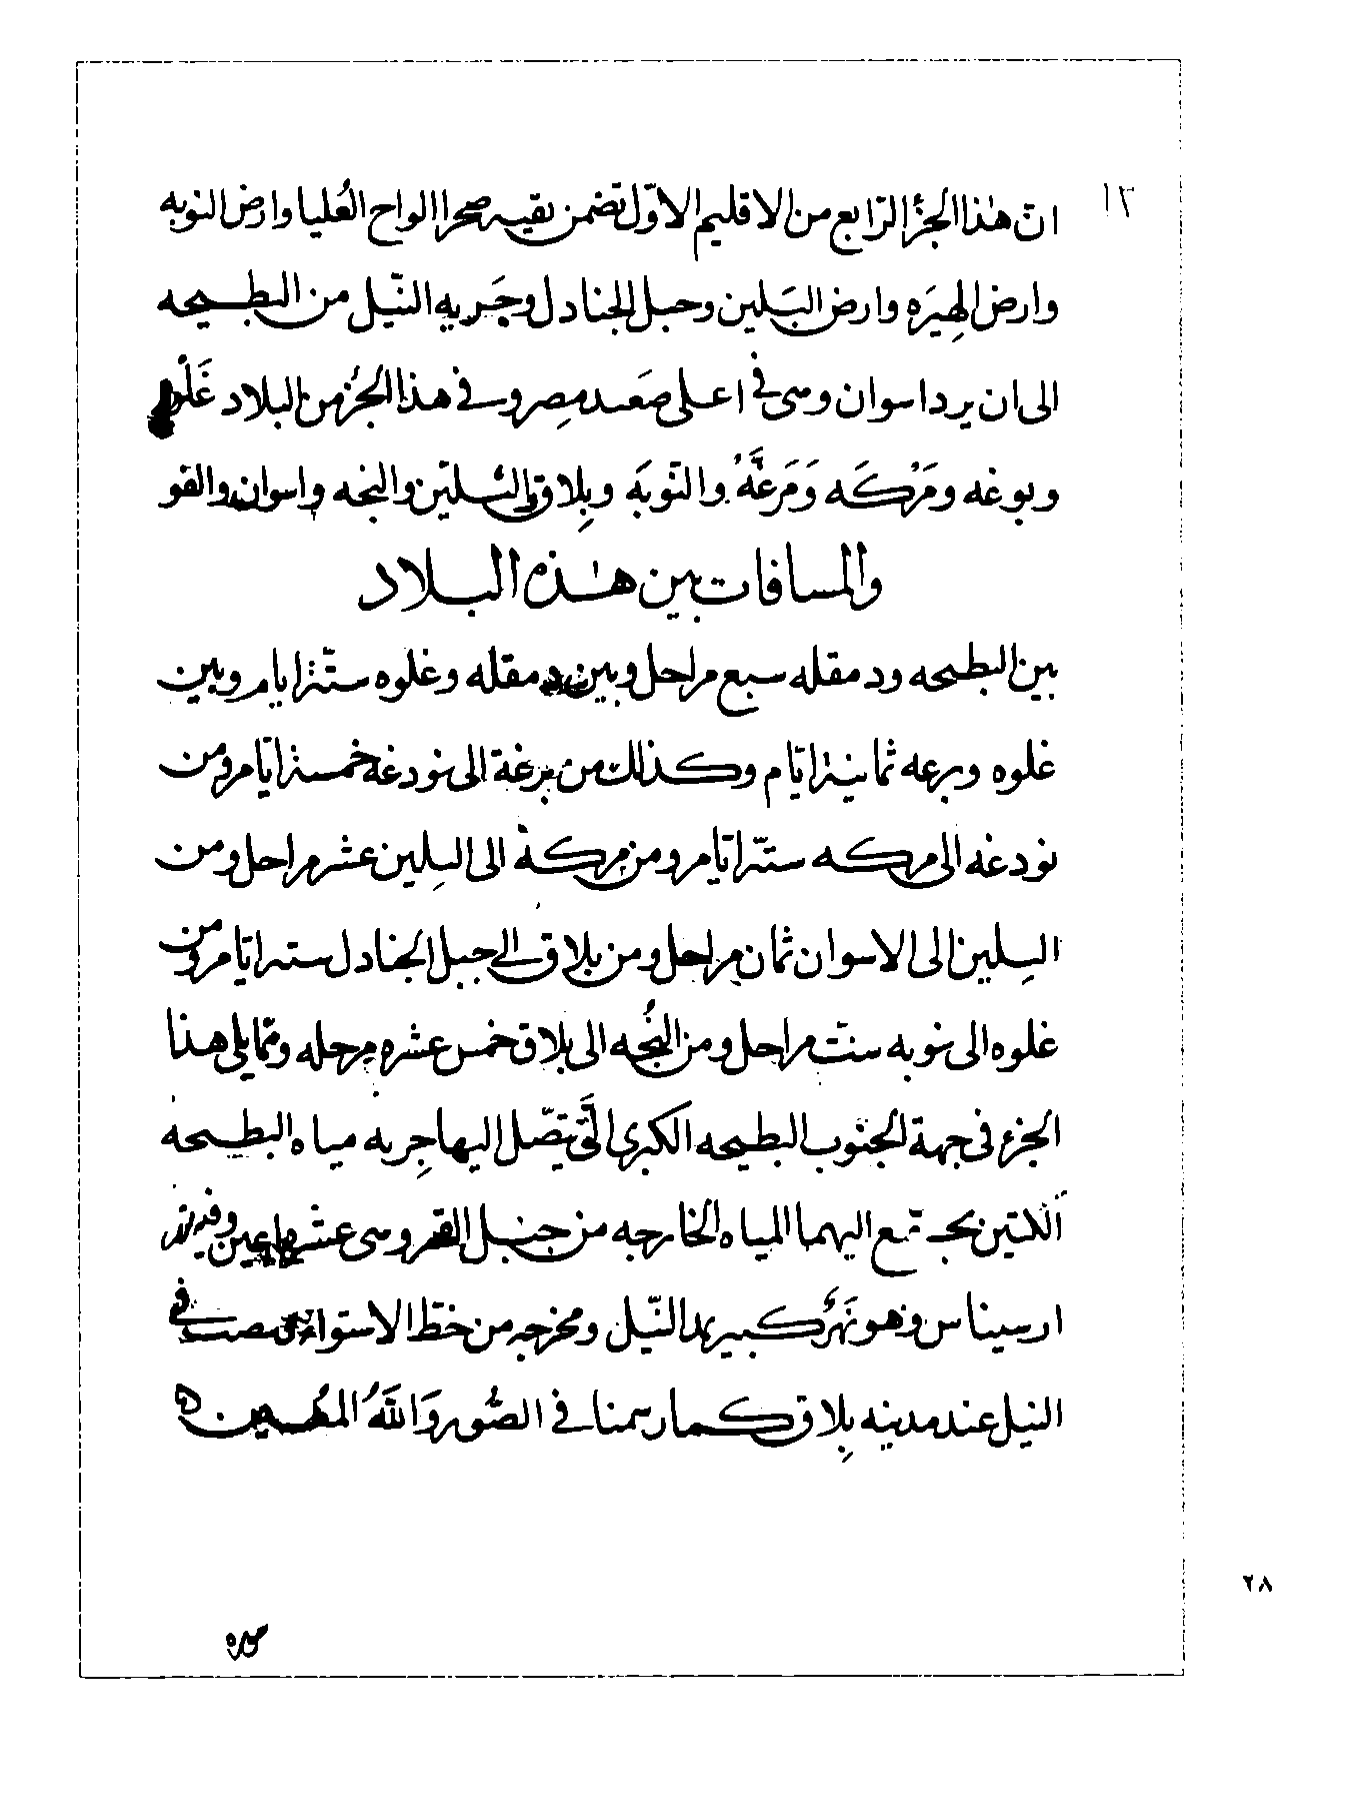 ١٣
ان هذا الجزء الرابع من الاقليم الاوّل تضمن بقيه صحرا الواح العُليا وارض النوبه
وارض الهِيَرَه وارض البَلين وجبل الجنادل وجَريه النّيل من البطيحه
الى ان يرد اسوان وهى فى اعلى صَعيد مِصر وفى هذا الجُزء من البلاد غَلْوه
وبوغه ومَرْكَه وَمَرغَّهُ والنّوبَه وبِلاق البلين والبُجه واسوان والقو
والمسافات بين هٰذه البلاد
بين البطيحه ودمقله سبع مراحل وبين دمقله وغلوه ستّة ايام وبين
غلوه وبرعه ثمانية ايّام وكذلك من برغة الى نودغه خمسة ايّام ومن
نودغه الى مركه ستّة ايّام ومن مركة الى البِلين عشر مراحل ومن
البِلين الى الاسوان ثمان مراحل ومن بلاق الى جبل الجنادل سته ايّام ومن
غلوه الى نوبه ستّ مراحل ومن البُجه الى بلاق خمس عشره مرحله وممّا يلى هذا
الجزء فى جهة الجنوب البطيحه الكبرى الَّتى يتصّل اليها جِريه مياه البطيحه
اللتين يجتمع اليهما المياه الخارجه من جبل القمر وهى عشر
ارسيناس وهو نَهرٌ كبير يمد النّيل ومخرجه من خطّ الاستواء يصب فى
النيل عند مدينه بِلاق كما رسمنا فى الصُّور وَاللهُ المُهيمن ه
صوره
٢٨